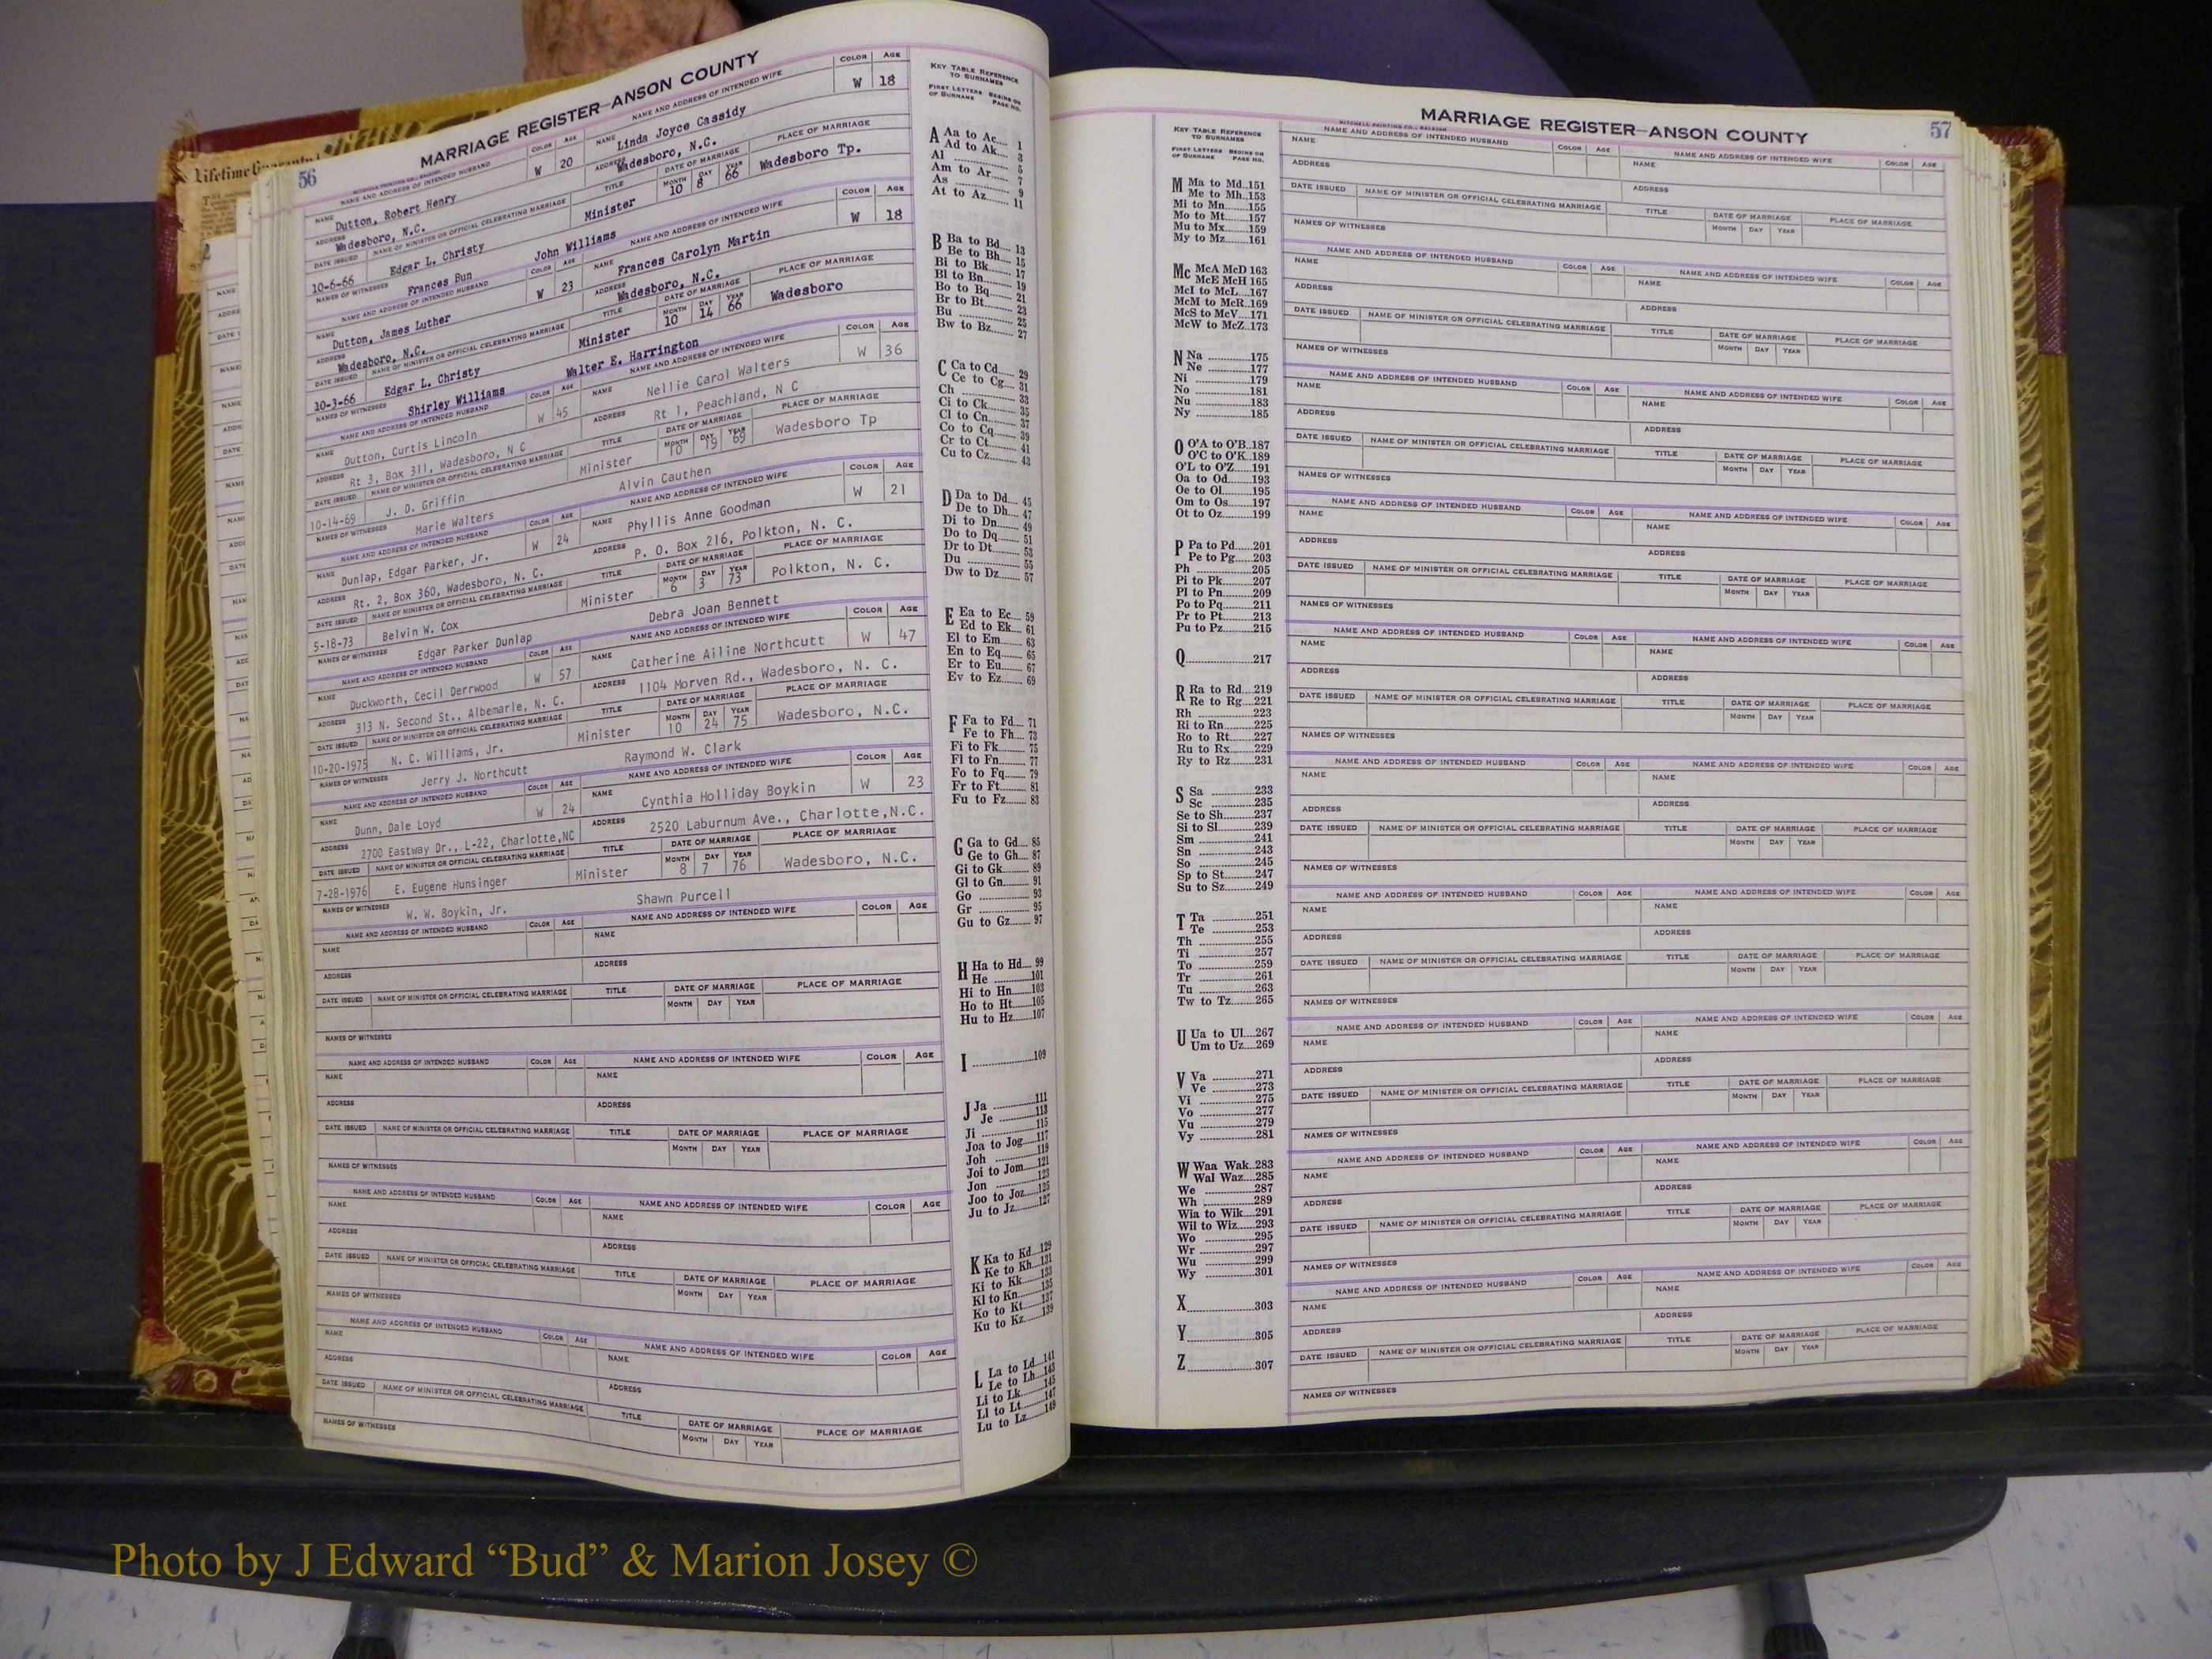 Lifetime Guarantee!
56
MARRIAGE REGISTER—ANSON COUNTY
MITCHELL PRINTING CO., RALEIGH
NAME AND ADDRESS OF INTENDED HUSBAND COLOR AGE NAME AND ADDRESS OF INTENDED WIFE COLOR AGE
NAME Dutton, Robert Henry W 20 NAME Linda Joyce Cassidy W 18
ADDRESS Wadesboro, N.C. ADDRESS Wadesboro, N.C.
DATE ISSUED NAME OF MINISTER OR OFFICIAL CELEBRATING MARRIAGE TITLE DATE OF MARRIAGE PLACE OF MARRIAGE
MONTH DAY YEAR
10-6-66 Edgar L. Christy Minister 10 8 66 Wadesboro Tp.
NAMES OF WITNESSES Frances Bun John Williams
NAME AND ADDRESS OF INTENDED HUSBAND COLOR AGE NAME AND ADDRESS OF INTENDED WIFE COLOR AGE
NAME Dutton, James Luther W 23 NAME Frances Carolyn Martin W 18
ADDRESS Wadesboro, N.C. ADDRESS Wadesboro, N.C.
DATE ISSUED NAME OF MINISTER OR OFFICIAL CELEBRATING MARRIAGE TITLE DATE OF MARRIAGE PLACE OF MARRIAGE
MONTH DAY YEAR
10-3-66 Edgar L. Christy Minister 10 14 66 Wadesboro
NAMES OF WITNESSES Shirley Williams Walter E. Harrington
NAME AND ADDRESS OF INTENDED HUSBAND COLOR AGE NAME AND ADDRESS OF INTENDED WIFE COLOR AGE
NAME Dutton, Curtis Lincoln W 45 NAME Nellie Carol Walters W 36
ADDRESS Rt 3, Box 311, Wadesboro, N C ADDRESS Rt 1, Peachland, N C
DATE ISSUED NAME OF MINISTER OR OFFICIAL CELEBRATING MARRIAGE TITLE DATE OF MARRIAGE PLACE OF MARRIAGE
MONTH DAY YEAR
10-14-69 J. D. Griffin Minister 10 19 69 Wadesboro Tp
NAMES OF WITNESSES Marie Walters Alvin Cauthen
NAME AND ADDRESS OF INTENDED HUSBAND COLOR AGE NAME AND ADDRESS OF INTENDED WIFE COLOR AGE
NAME Dunlap, Edgar Parker, Jr. W 24 NAME Phyllis Anne Goodman W 21
ADDRESS Rt. 2, Box 360, Wadesboro, N. C. ADDRESS P. O. Box 216, Polkton, N. C.
DATE ISSUED NAME OF MINISTER OR OFFICIAL CELEBRATING MARRIAGE TITLE DATE OF MARRIAGE PLACE OF MARRIAGE
MONTH DAY YEAR
5-18-73 Belvin W. Cox Minister 6 3 73 Polkton, N. C.
NAMES OF WITNESSES Edgar Parker Dunlap Debra Joan Bennett
NAME AND ADDRESS OF INTENDED HUSBAND COLOR AGE NAME AND ADDRESS OF INTENDED WIFE COLOR AGE
NAME Duckworth, Cecil Derrwood W 57 NAME Catherine Ailine Northcutt W 47
ADDRESS 313 N. Second St., Albemarle, N. C. ADDRESS 1104 Morven Rd., Wadesboro, N. C.
DATE ISSUED NAME OF MINISTER OR OFFICIAL CELEBRATING MARRIAGE TITLE DATE OF MARRIAGE PLACE OF MARRIAGE
MONTH DAY YEAR
10-20-1975 N. C. Williams, Jr. Minister 10 24 75 Wadesboro, N.C.
NAMES OF WITNESSES Jerry J. Northcutt Raymond W. Clark
NAME AND ADDRESS OF INTENDED HUSBAND COLOR AGE NAME AND ADDRESS OF INTENDED WIFE COLOR AGE
NAME Dunn, Dale Loyd W 24 NAME Cynthia Holliday Boykin W 23
ADDRESS 2700 Eastway Dr., L-22, Charlotte,NC ADDRESS 2520 Laburnum Ave., Charlotte,N.C.
DATE ISSUED NAME OF MINISTER OR OFFICIAL CELEBRATING MARRIAGE TITLE DATE OF MARRIAGE PLACE OF MARRIAGE
MONTH DAY YEAR
7-28-1976 E. Eugene Hunsinger Minister 8 7 76 Wadesboro, N.C.
NAMES OF WITNESSES W. W. Boykin, Jr. Shawn Purcell
NAME AND ADDRESS OF INTENDED HUSBAND COLOR AGE NAME AND ADDRESS OF INTENDED WIFE COLOR AGE
NAME NAME
ADDRESS ADDRESS
DATE ISSUED NAME OF MINISTER OR OFFICIAL CELEBRATING MARRIAGE TITLE DATE OF MARRIAGE PLACE OF MARRIAGE
MONTH DAY YEAR
NAMES OF WITNESSES
NAME AND ADDRESS OF INTENDED HUSBAND COLOR AGE NAME AND ADDRESS OF INTENDED WIFE COLOR AGE
NAME NAME
ADDRESS ADDRESS
DATE ISSUED NAME OF MINISTER OR OFFICIAL CELEBRATING MARRIAGE TITLE DATE OF MARRIAGE PLACE OF MARRIAGE
MONTH DAY YEAR
NAMES OF WITNESSES
NAME AND ADDRESS OF INTENDED HUSBAND COLOR AGE NAME AND ADDRESS OF INTENDED WIFE COLOR AGE
NAME NAME
ADDRESS ADDRESS
DATE ISSUED NAME OF MINISTER OR OFFICIAL CELEBRATING MARRIAGE TITLE DATE OF MARRIAGE PLACE OF MARRIAGE
MONTH DAY YEAR
NAMES OF WITNESSES
NAME AND ADDRESS OF INTENDED HUSBAND COLOR AGE NAME AND ADDRESS OF INTENDED WIFE COLOR AGE
NAME NAME
ADDRESS ADDRESS
DATE ISSUED NAME OF MINISTER OR OFFICIAL CELEBRATING MARRIAGE TITLE DATE OF MARRIAGE PLACE OF MARRIAGE
MONTH DAY YEAR
NAMES OF WITNESSES
KEY TABLE REFERENCE
TO SURNAMES
FIRST LETTERS BEGINS ON
OF SURNAME PAGE NO.
A Aa to Ac.... 1
Ad to Ak.... 3
Al .............. 5
Am to Ar..... 7
As .............. 9
At to Az...... 11
B Ba to Bd.... 13
Be to Bh.... 15
Bi to Bk...... 17
Bl to Bn...... 19
Bo to Bq..... 21
Br to Bt...... 23
Bu .............. 25
Bw to Bz..... 27
C Ca to Cd.... 29
Ce to Cg.... 31
Ch .............. 33
Ci to Ck...... 35
Cl to Cn...... 37
Co to Cq..... 39
Cr to Ct...... 41
Cu to Cz..... 43
D Da to Dd.... 45
De to Dh.... 47
Di to Dn..... 49
Do to Dq..... 51
Dr to Dt...... 53
Du .............. 55
Dw to Dz..... 57
E Ea to Ec.... 59
Ed to Ek.... 61
El to Em..... 63
En to Eq..... 65
Er to Eu..... 67
Ev to Ez..... 69
F Fa to Fd.... 71
Fe to Fh.... 73
Fi to Fk...... 75
Fl to Fn...... 77
Fo to Fq..... 79
Fr to Ft...... 81
Fu to Fz..... 83
G Ga to Gd.... 85
Ge to Gh.... 87
Gi to Gk..... 89
Gl to Gn..... 91
Go .............. 93
Gr .............. 95
Gu to Gz..... 97
H Ha to Hd.... 99
He ............101
Hi to Hn......103
Ho to Ht......105
Hu to Hz......107
I ..................109
J Ja ............111
Je ............113
Ji ..............115
Joa to Jog.....117
Joh ............119
Joi to Jom....121
Jon ............123
Joo to Joz....125
Ju to Jz.......127
K Ka to Kd...129
Ke to Kh...131
Ki to Kk.....133
Kl to Kn.....135
Ko to Kt.....137
Ku to Kz.....139
L La to Ld...141
Le to Lh...143
Li to Lk.....145
Ll to Lt.....147
Lu to Lz.....149
57
MARRIAGE REGISTER—ANSON COUNTY
MITCHELL PRINTING CO., RALEIGH
KEY TABLE REFERENCE
TO SURNAMES
FIRST LETTERS BEGINS ON
OF SURNAME PAGE NO.
M Ma to Md..151
Me to Mh..153
Mi to Mn......155
Mo to Mt......157
Mu to Mx......159
My to Mz......161
Mc McA McD 163
McE McH 165
McI to McL....167
McM to McR..169
McS to McV....171
McW to McZ..173
N Na .............175
Ne .............177
Ni ...............179
No ..............181
Nu ..............183
Ny ..............185
O O'A to O'B..187
O'C to O'K..189
O'L to O'Z.....191
Oa to Od......193
Oe to Ol.......195
Om to Os......197
Ot to Oz.......199
P Pa to Pd.....201
Pe to Pg.....203
Ph .............205
Pi to Pk.......207
Pl to Pn.......209
Po to Pq......211
Pr to Pt.......213
Pu to Pz......215
Q..................217
R Ra to Rd....219
Re to Rg....221
Rh .............223
Ri to Rn......225
Ro to Rt......227
Ru to Rx.....229
Ry to Rz......231
S Sa ............233
Sc ............235
Se to Sh......237
Si to Sl.......239
Sm .............241
Sn .............243
So .............245
Sp to St......247
Su to Sz......249
T Ta ............251
Te ............253
Th .............255
Ti .............257
To .............259
Tr .............261
Tu .............263
Tw to Tz......265
U Ua to Ul....267
Um to Uz....269
V Va ............271
Ve ............273
Vi .............275
Vo .............277
Vu .............279
Vy .............281
W Waa Wak..283
Wal Waz...285
We .............287
Wh .............289
Wia to Wik....291
Wil to Wiz.....293
Wo .............295
Wr .............297
Wu .............299
Wy .............301
X..................303
Y..................305
Z..................307
NAME AND ADDRESS OF INTENDED HUSBAND COLOR AGE NAME AND ADDRESS OF INTENDED WIFE COLOR AGE
NAME NAME
ADDRESS ADDRESS
DATE ISSUED NAME OF MINISTER OR OFFICIAL CELEBRATING MARRIAGE TITLE DATE OF MARRIAGE PLACE OF MARRIAGE
MONTH DAY YEAR
NAMES OF WITNESSES
NAME AND ADDRESS OF INTENDED HUSBAND COLOR AGE NAME AND ADDRESS OF INTENDED WIFE COLOR AGE
NAME NAME
ADDRESS ADDRESS
DATE ISSUED NAME OF MINISTER OR OFFICIAL CELEBRATING MARRIAGE TITLE DATE OF MARRIAGE PLACE OF MARRIAGE
MONTH DAY YEAR
NAMES OF WITNESSES
NAME AND ADDRESS OF INTENDED HUSBAND COLOR AGE NAME AND ADDRESS OF INTENDED WIFE COLOR AGE
NAME NAME
ADDRESS ADDRESS
DATE ISSUED NAME OF MINISTER OR OFFICIAL CELEBRATING MARRIAGE TITLE DATE OF MARRIAGE PLACE OF MARRIAGE
MONTH DAY YEAR
NAMES OF WITNESSES
NAME AND ADDRESS OF INTENDED HUSBAND COLOR AGE NAME AND ADDRESS OF INTENDED WIFE COLOR AGE
NAME NAME
ADDRESS ADDRESS
DATE ISSUED NAME OF MINISTER OR OFFICIAL CELEBRATING MARRIAGE TITLE DATE OF MARRIAGE PLACE OF MARRIAGE
MONTH DAY YEAR
NAMES OF WITNESSES
NAME AND ADDRESS OF INTENDED HUSBAND COLOR AGE NAME AND ADDRESS OF INTENDED WIFE COLOR AGE
NAME NAME
ADDRESS ADDRESS
DATE ISSUED NAME OF MINISTER OR OFFICIAL CELEBRATING MARRIAGE TITLE DATE OF MARRIAGE PLACE OF MARRIAGE
MONTH DAY YEAR
NAMES OF WITNESSES
NAME AND ADDRESS OF INTENDED HUSBAND COLOR AGE NAME AND ADDRESS OF INTENDED WIFE COLOR AGE
NAME NAME
ADDRESS ADDRESS
DATE ISSUED NAME OF MINISTER OR OFFICIAL CELEBRATING MARRIAGE TITLE DATE OF MARRIAGE PLACE OF MARRIAGE
MONTH DAY YEAR
NAMES OF WITNESSES
NAME AND ADDRESS OF INTENDED HUSBAND COLOR AGE NAME AND ADDRESS OF INTENDED WIFE COLOR AGE
NAME NAME
ADDRESS ADDRESS
DATE ISSUED NAME OF MINISTER OR OFFICIAL CELEBRATING MARRIAGE TITLE DATE OF MARRIAGE PLACE OF MARRIAGE
MONTH DAY YEAR
NAMES OF WITNESSES
NAME AND ADDRESS OF INTENDED HUSBAND COLOR AGE NAME AND ADDRESS OF INTENDED WIFE COLOR AGE
NAME NAME
ADDRESS ADDRESS
DATE ISSUED NAME OF MINISTER OR OFFICIAL CELEBRATING MARRIAGE TITLE DATE OF MARRIAGE PLACE OF MARRIAGE
MONTH DAY YEAR
NAMES OF WITNESSES
NAME AND ADDRESS OF INTENDED HUSBAND COLOR AGE NAME AND ADDRESS OF INTENDED WIFE COLOR AGE
NAME NAME
ADDRESS ADDRESS
DATE ISSUED NAME OF MINISTER OR OFFICIAL CELEBRATING MARRIAGE TITLE DATE OF MARRIAGE PLACE OF MARRIAGE
MONTH DAY YEAR
NAMES OF WITNESSES
NAME AND ADDRESS OF INTENDED HUSBAND COLOR AGE NAME AND ADDRESS OF INTENDED WIFE COLOR AGE
NAME NAME
ADDRESS ADDRESS
DATE ISSUED NAME OF MINISTER OR OFFICIAL CELEBRATING MARRIAGE TITLE DATE OF MARRIAGE PLACE OF MARRIAGE
MONTH DAY YEAR
NAMES OF WITNESSES
Photo by J Edward “Bud” & Marion Josey ©